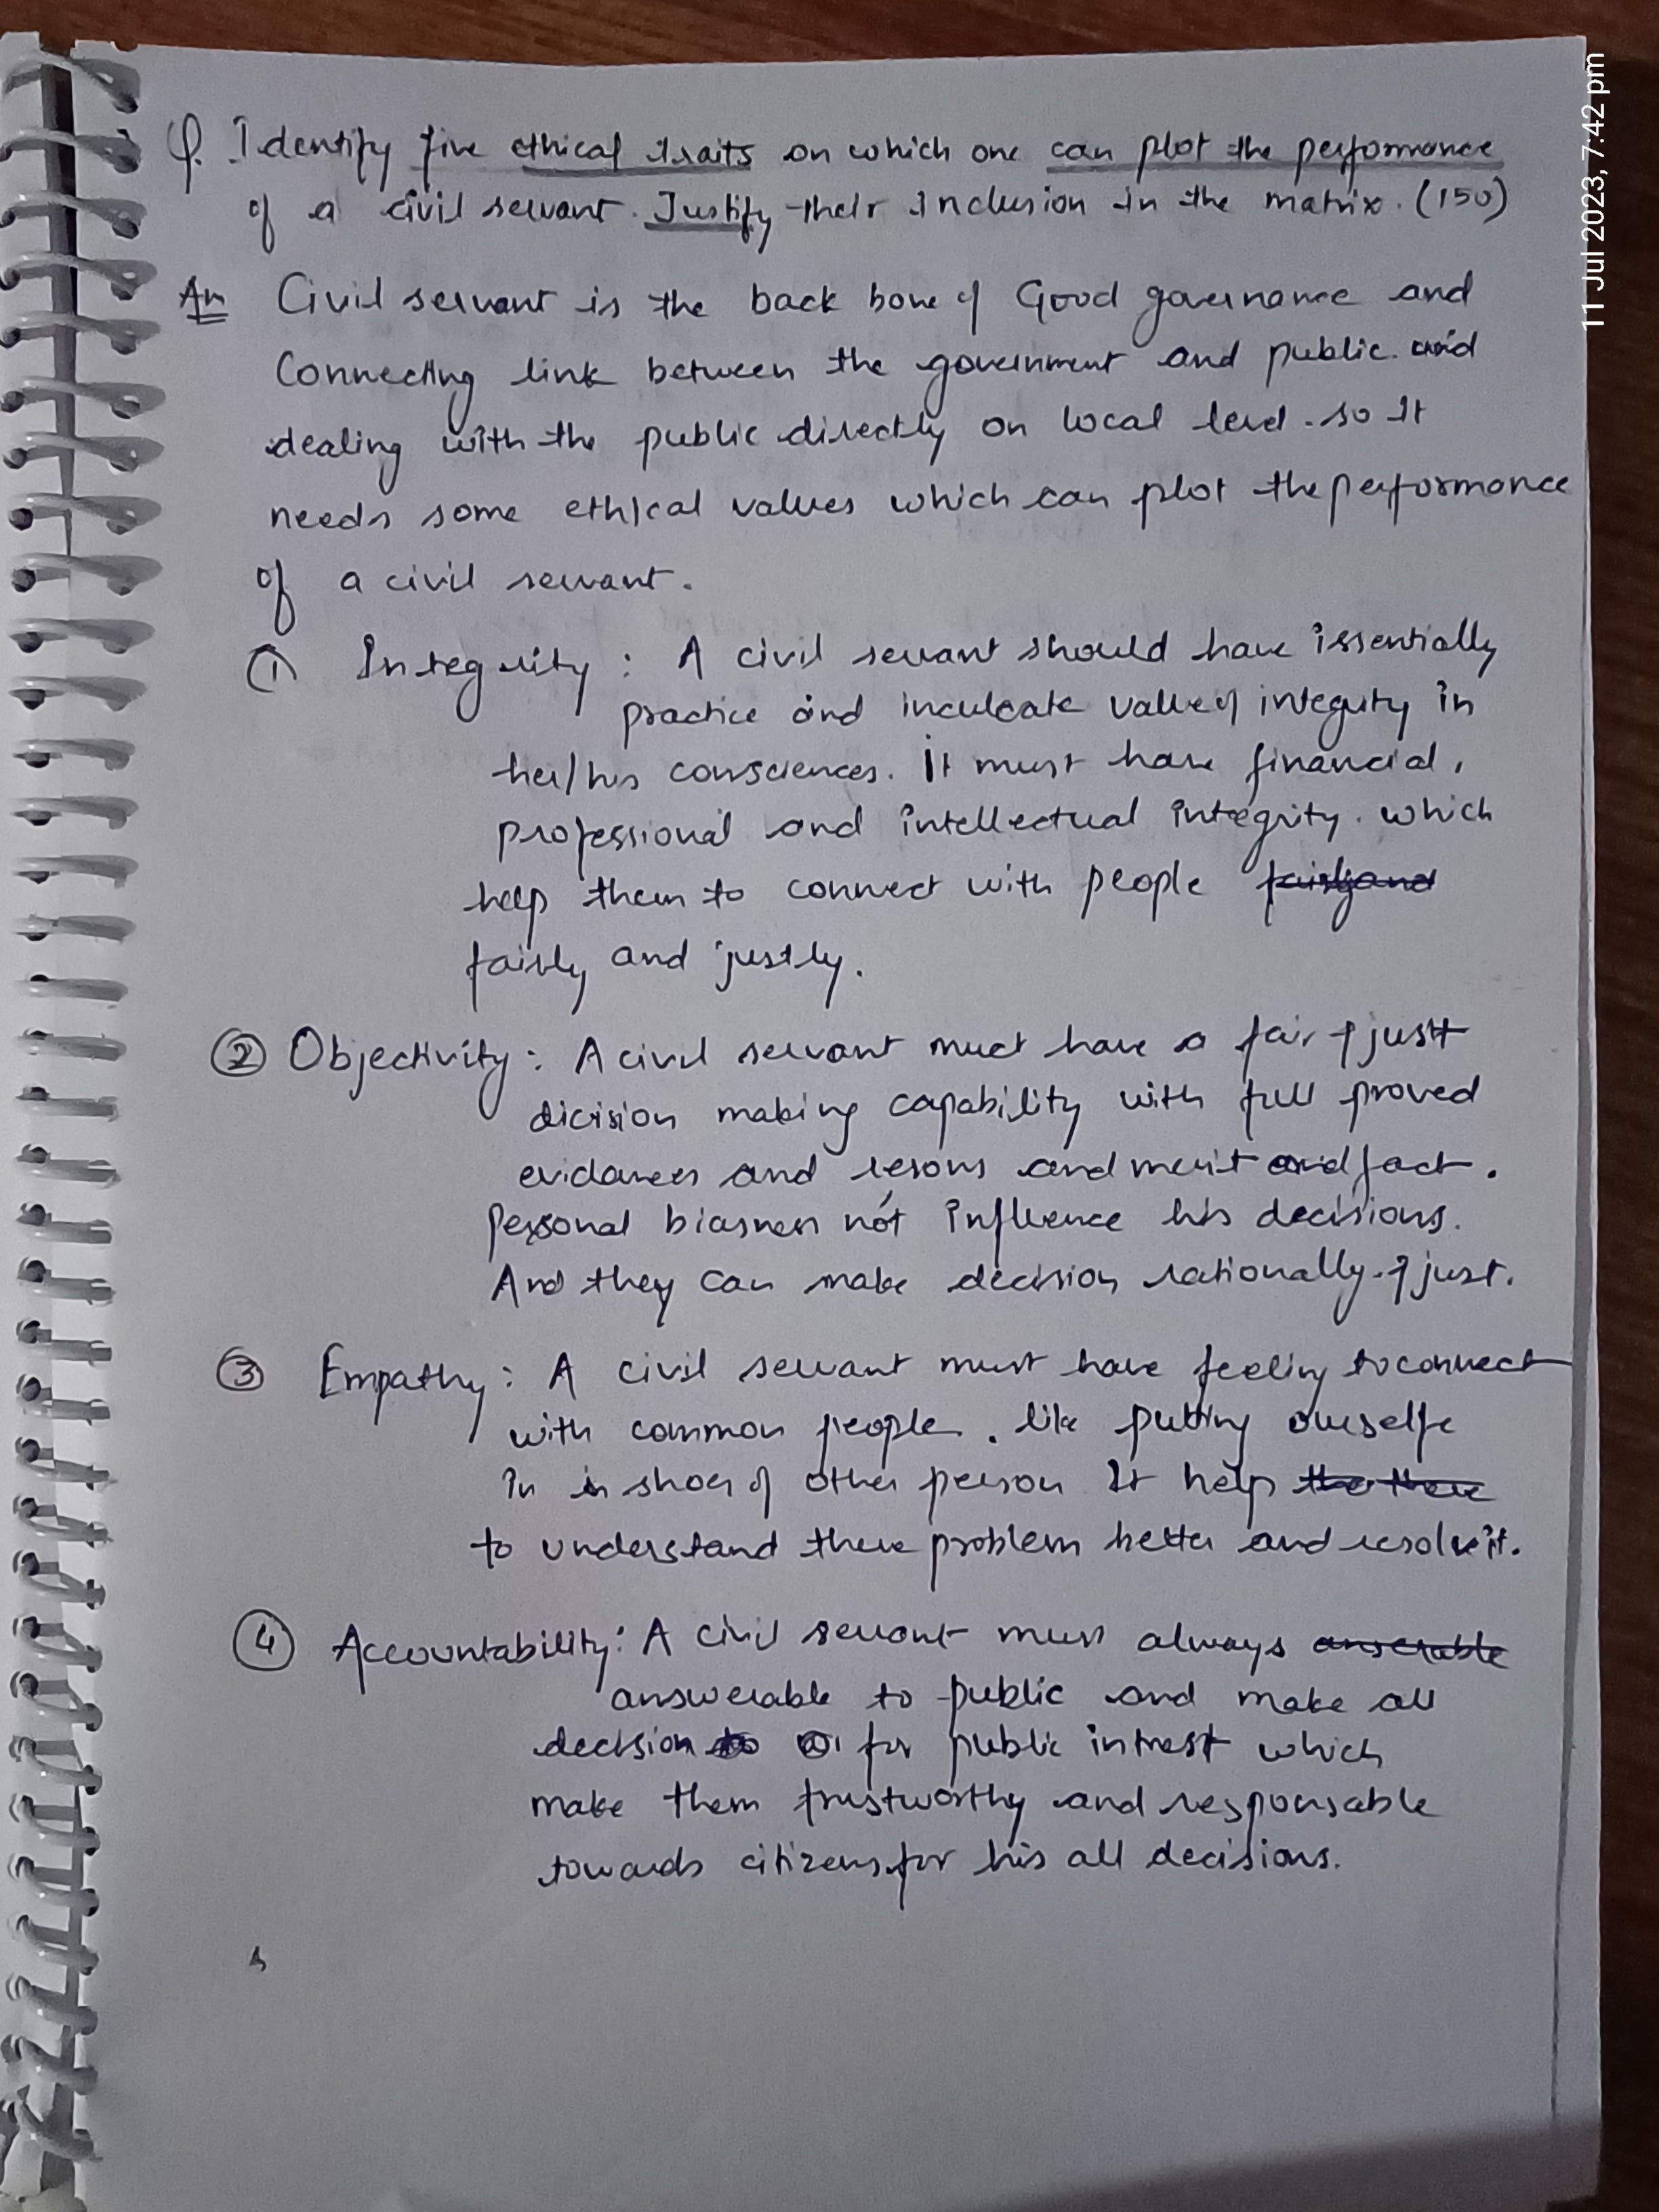 Q. Identify five ethical traits on which one can plot the performance
of a civil servant. Justify their inclusion in the matrix. (150)
Ans Civil servant is the back bone of Good governance and
Connecting link between the government and public and
dealing with the public directly on local level. so it
needs some ethical values which can plot the performance
of a civil servant.
① Integrity : A civil servant should have issentially
practice and inculcate value of integrity in
her/his consciences. It must have financial,
professional and intellectual integrity. which
help them to connect with people fairly and
fairly and justly.
② Objectivity : A civil servant must have a fair & just
dicision making capability with full proved
evidances and resons and merit and fact.
Personal biasness not influence his decisions.
And they can make decision rationally & just.
③ Empathy : A civil servant must have feeling to connect
with common people. like putting ourselfe
in in shoes of other person It help
to understand there problem better and resolve it.
④ Accountability : A civil servant must always anserable
answerable to public and make all
decision for public intrest which
make them trustworthy and responsable
towards citizens for his all decisions.
11 Jul 2023, 7:42 pm